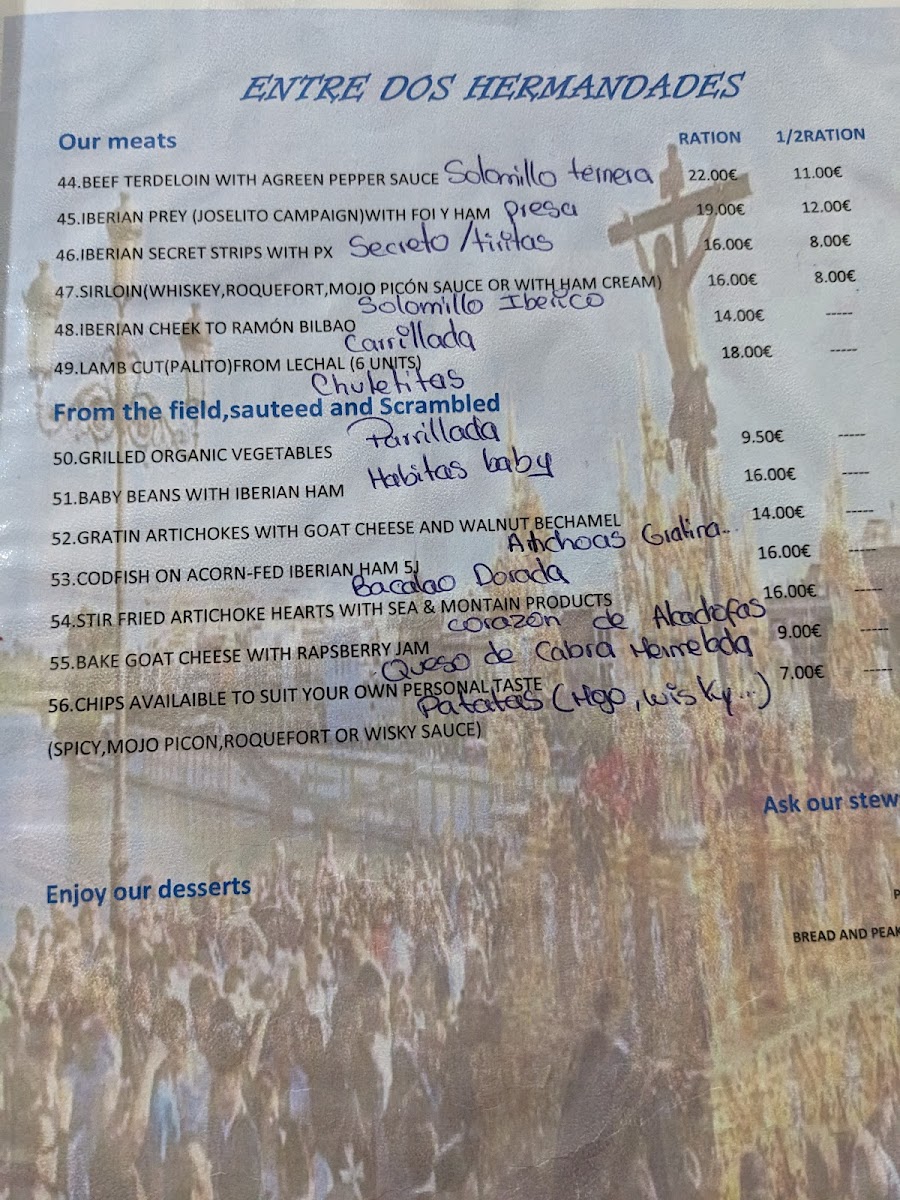 ENTRE DOS HERMANDADES
Our meats RATION 1/2RATION
44.BEEF TERDELOIN WITH AGREEN PEPPER SAUCE Solomillo ternera 22.00€ 11.00€
45.IBERIAN PREY (JOSELITO CAMPAIGN)WITH FOI Y HAM presa 19.00€ 12.00€
46.IBERIAN SECRET STRIPS WITH PX Secreto/tiritas 16.00€ 8.00€
47.SIRLOIN(WHISKEY,ROQUEFORT,MOJO PICÓN SAUCE OR WITH HAM CREAM) 16.00€ 8.00€
Solomillo Iberico
48.IBERIAN CHEEK TO RAMÓN BILBAO 14.00€ -----
Carrillada
49.LAMB CUT(PALITO)FROM LECHAL (6 UNITS) 18.00€ -----
Chuletitas
From the field,sauteed and Scrambled
50.GRILLED ORGANIC VEGETABLES Parrillada 9.50€ -----
51.BABY BEANS WITH IBERIAN HAM Habitas baby 16.00€ -----
52.GRATIN ARTICHOKES WITH GOAT CHEESE AND WALNUT BECHAMEL 14.00€ -----
Gratina..
53.CODFISH ON ACORN-FED IBERIAN HAM 5J 16.00€ -----
Bacalao Dorada
54.STIR FRIED ARTICHOKE HEARTS WITH SEA & MONTAIN PRODUCTS 16.00€ -----
corazón de
55.BAKE GOAT CHEESE WITH RAPSBERRY JAM 9.00€ -----
Queso de Cabra
56.CHIPS AVAILAIBLE TO SUIT YOUR OWN PERSONAL TASTE 7.00€ -----
Patatas (Mojo, wisky...)
(SPICY,MOJO PICON,ROQUEFORT OR WISKY SAUCE)
Ask our stew
Enjoy our desserts
P
BREAD AND PEAK